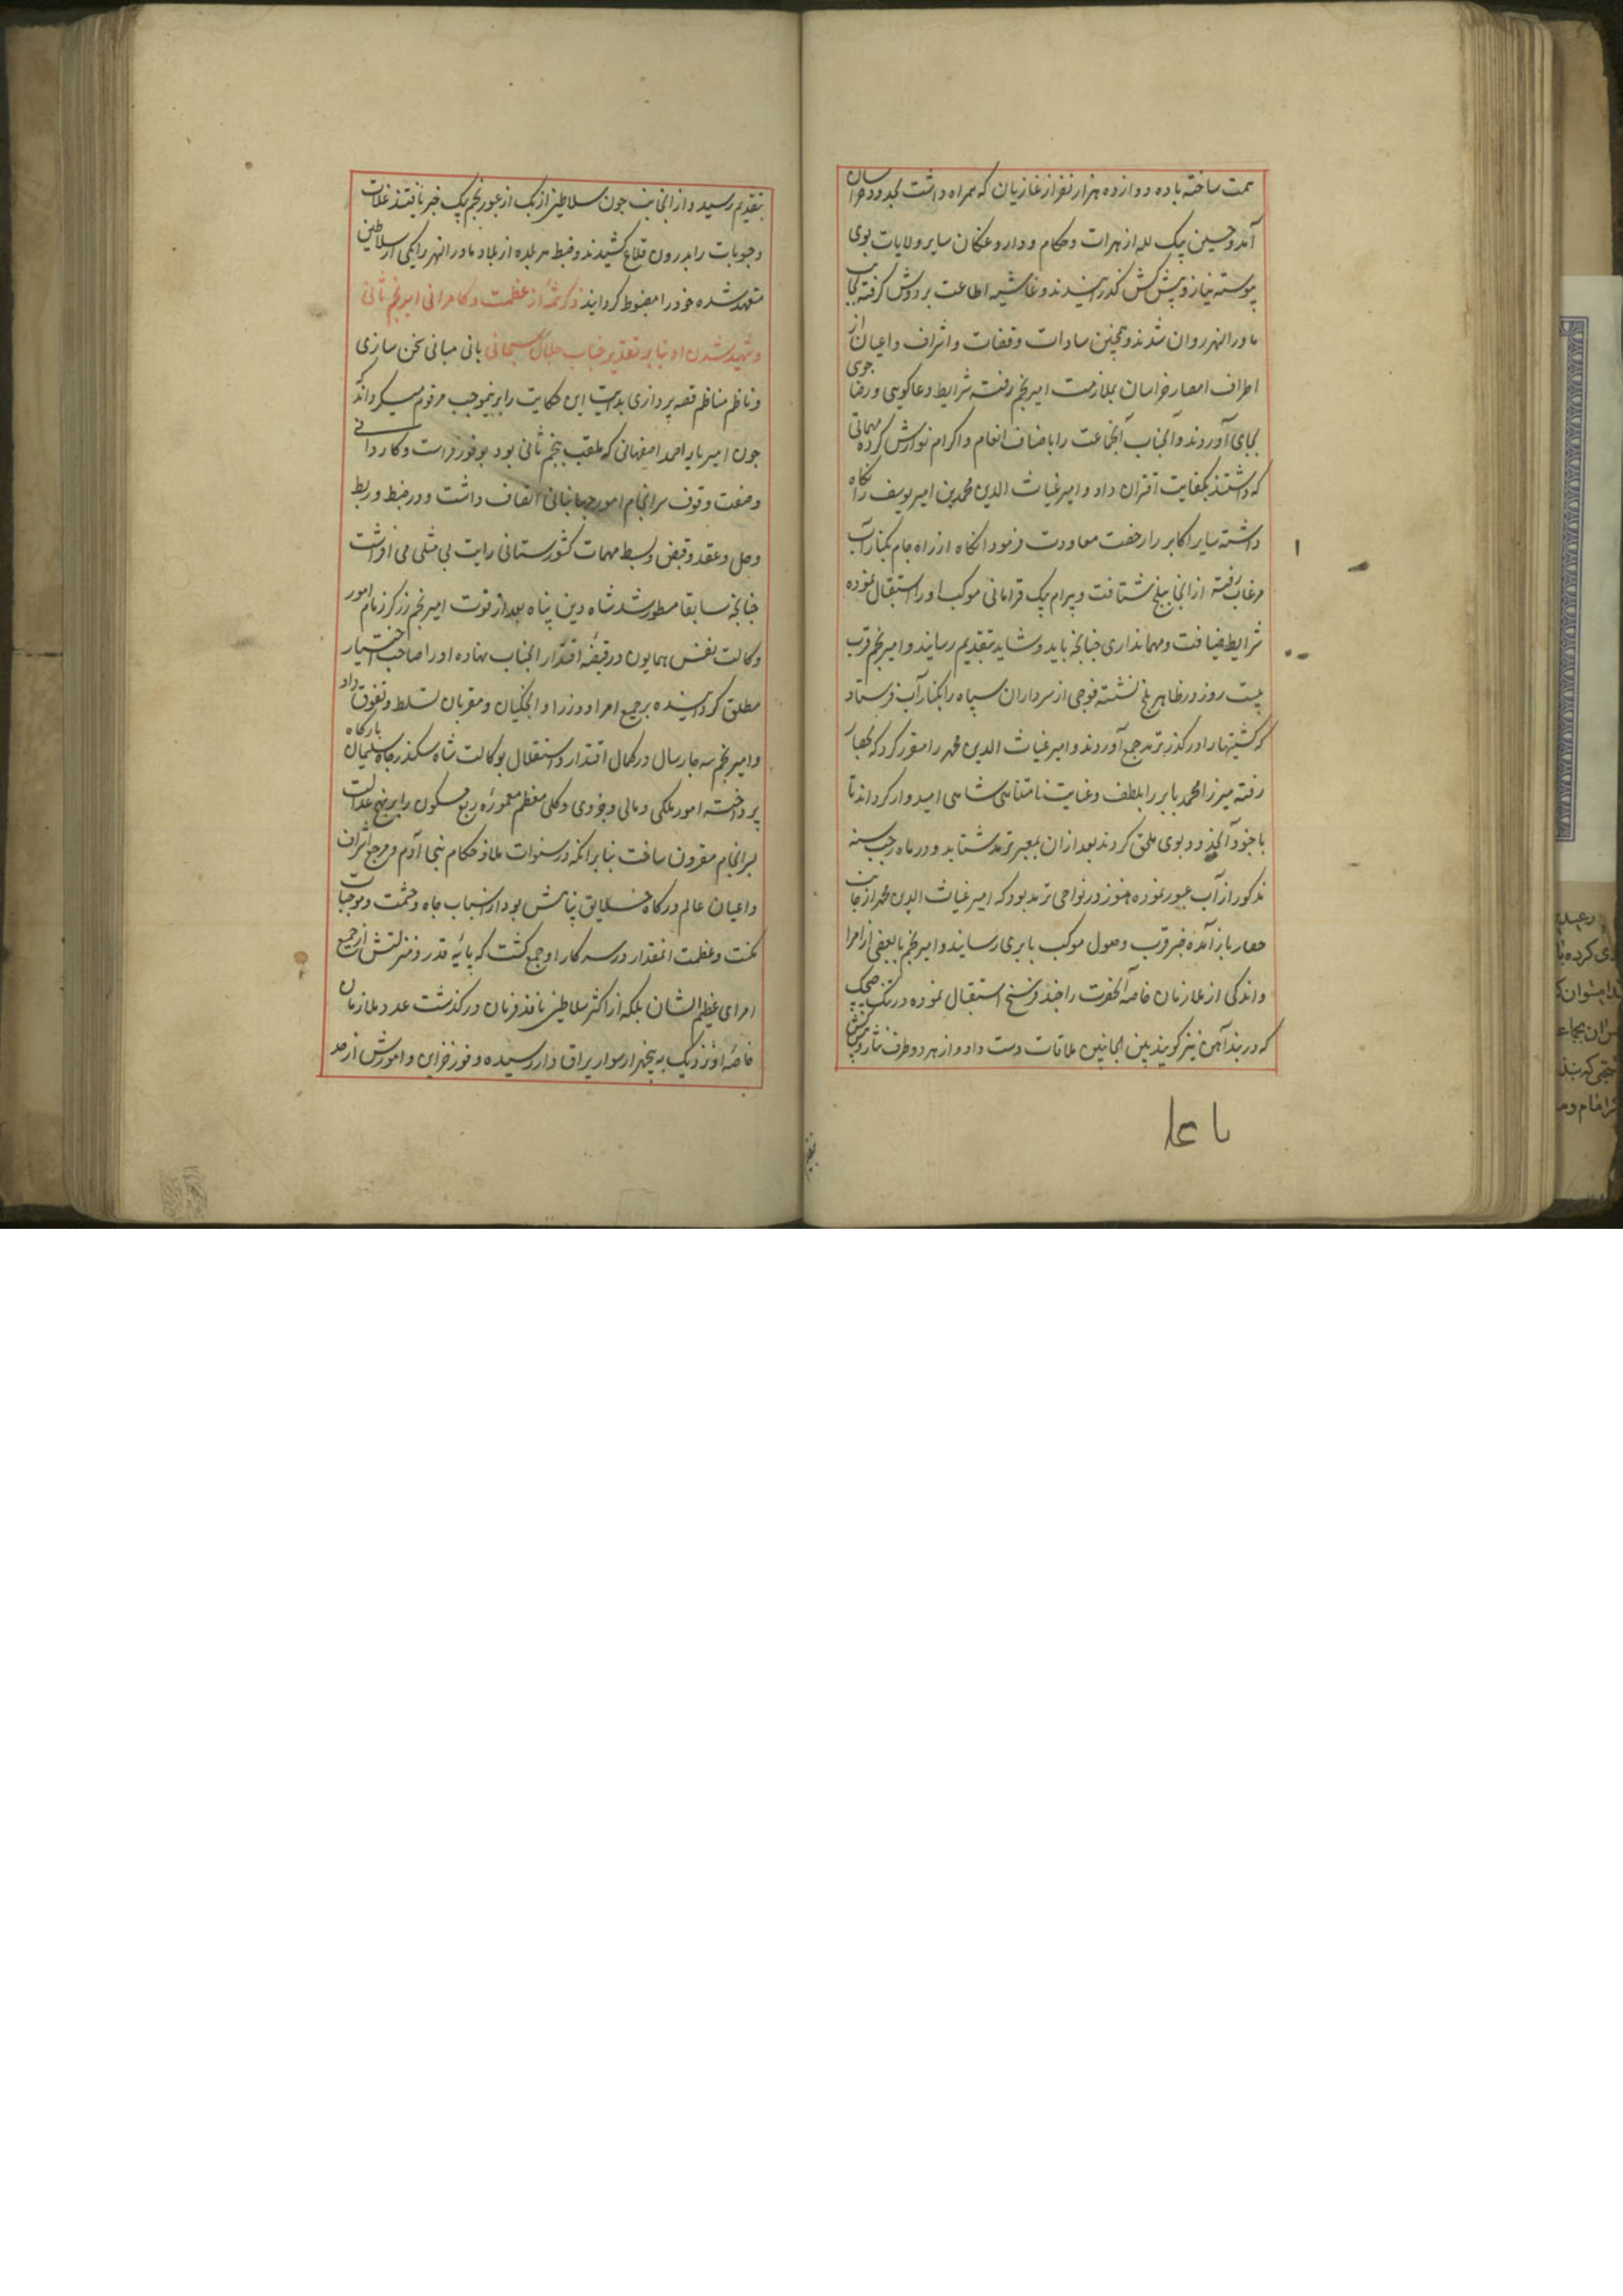 همت ساخته با ده دوازده هزار نفر از غازیان که همراه داشت بحدود خراسان
آمد و حسین بیک لله از هرات و حکام و داروغکان سایر ولایات بوی
پیوسته نیاز و پیش کش کذرانیدند و غاشیه اطاعت بر دوش کرفته بجانب
ماورالنهر روان شدند و همچنین سادات و قضات و اشراف و اعیان از
اطراف امصار خراسان بملازمت امیر نجم رفته شرایط دعاکویی و رضا جوی
بجای آوردند و آنجناب آنجماعت را باصناف انعام و اکرام نوازش کرده مهماتی
که داشتند بکفایت اقتران داد و امیر غیاث الدین محمد بن امیر یوسف را نکاه
داشته سایر اکابر را رخصت معاودت فرمود انکاه از راه جام بکنار آب
مرغاب رفته از انجا ببلخ شتافت و بیرام بیک قرامانی موکب او را استقبال نموده
شرایط ضیافت و مهمانداری چنانچه باید و شاید بتقدیم رسانید و امیر نجم قرب
بیست روز در ظاهر بلخ نشسته فوجی از سرداران سپاه را بکنار آب فرستاد
که کشتیها را در کذر ترمد جمع آوردند و امیر غیاث الدین محمد را مقرر کرد که بحصار
رفته میرزا محمد بابر را بلطف و عنایت نامتناهی شاهی امیدوار کرداند تا
با جنود آنحدود بوی ملحق کردند بعد از ان بمعبر ترمد شتابد و در ماه رجب سنه
مذکور از آب عبور نموده هنوز در نواحی ترمد بود که امیر غیاث الدین محمد از جانب
حصار باز آمده خبر قرب وصول موکب بابری رسانید و امیر نجم با بعضی از امرا
و اندکی از ملازمان خاصه آنحضرت را چند فرسخ استقبال نموده در تنک چکچک
که دربند آهن نیز کویند بین الجانبین ملاقات دست داد و از هر دو طرف نثار و پیشکش
یا علی
بتقدیم رسید و از انجانب جون سلاطین ازبک از عبور نجم بیک خبر یافتند غلات
و حبوبات را بدرون قلاع کشیدند و ضبط هر بلده از بلاد ماورالنهر را یکی از سلاطین
متعهد شده خود را مضبوط کردانید ذکر شمه از عظمت و کامرانی امیر نجم ثانی
و شهید شدن او بنابر تقدیر جناب جلال سبحانی بانی مبانی سخن سازی
و ناظم مناظم قصه پردازی بدایت این حکایت را برینموجب مرقوم میکرداند که
جون امیر یار احمد اصفهانی که ملقب بنجم ثانی بود بوفور فراست و کاردانی
و صفت وقوف سرانجام امور جهانبانی اتصاف داشت و در ضبط و ربط
و حل و عقد و قبض و بسط مهمات کشورستانی رایت بی مثلی می افراشت
جنانجه سابقا مسطور شد شاه دین پناه بعد از فوت امیر نجم زرکر زمام امور
وکالت نفس همایون در قبضه اقتدار انجناب نهاده او را صاحب اختیار
مطلق کردانیده بر جمیع امرا و وزرا و ایجکیان و مقربان تسلط و تفوق داد
و امیر نجم سه جار سال در کمال اقتدار و استقلال بوکالت شاه سکندر جاه سلیمان بارکاه
پرداخته امور ملکی و مالی و جزوی و کلی معظم معموره ربع مسکون را بر نهج عدالت
بسرانجام مقرون ساخت بنابر انکه در سنوات ملاذ حکام بنی آدم و مرجع اشراف
و اعیان عالم درکاه خلایق پناهش بود از اسباب جاه و حشمت و موجبات
مکنت و عظمت انمقدار در سرکار او جمع کشت که پایه قدر و منزلتش از جمیع
امرای عظیم الشان بلکه از اکثر سلاطین نافذ فرمان درکذشت عدد ملازمان
خاصه او نزدیک به پنجهزار سوار یراق دار رسیده و وفور خزاین و اموالش از حد